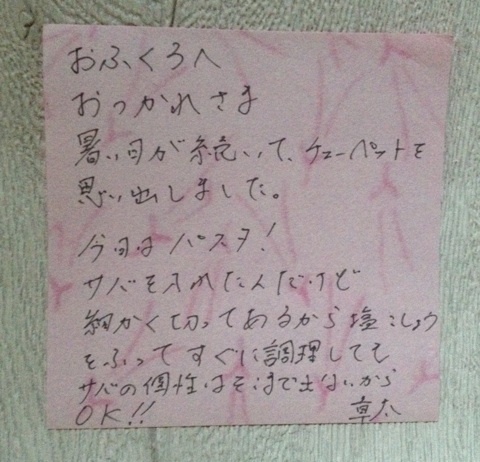 おふくろへ
おつかれさま
暑い日が続いて、チューペットを
思い出しました。
今日はパスタ!
サバを入れたんだけど
細かく切ってあるから塩こしょう
をふってすぐに調理しても
サバの個性はそこまで出ないから
OK!!
卓太